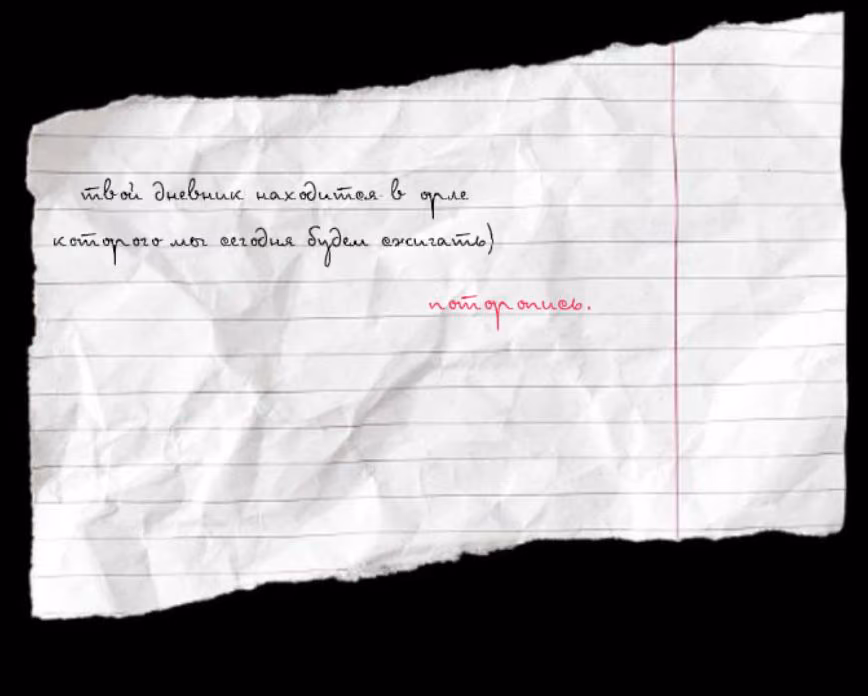 твой дневник находится в орле
которого мы сегодня будем сжигать)
поторопись.